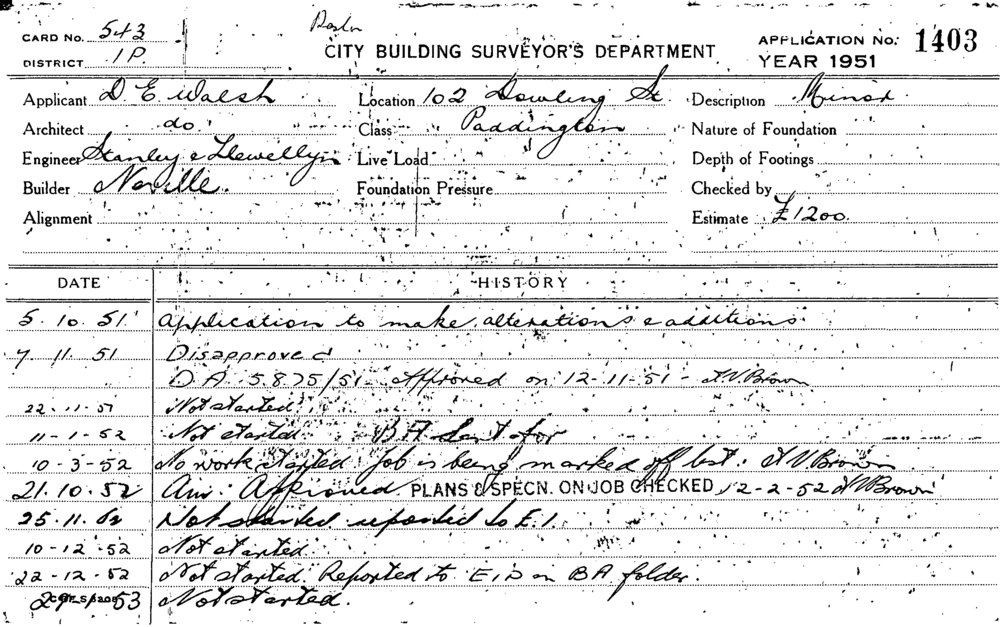 CARD No. 543
DISTRICT 1P.
CITY BUILDING SURVEYOR'S DEPARTMENT
APPLICATION No. 1403
YEAR 1951
Applicant D E Walsh
Location 102 Dowling St
Description Minor
Architect do
Class Paddington
Nature of Foundation
Engineer Stanley & Llewellyn
Live Load
Depth of Footings
Builder Neville.
Foundation Pressure
Checked by
Alignment
Estimate £1200
DATE HISTORY
5.10.51 Application to make alterations & additions
7.11.51 Disapproved
D A 5875/51 approved on 12-11-51 -
22.11.51 Not started
11-1-52 Not started. B A sent for
10-3-52 No work started. Job is being marked off list.
21.10.52 Am. Approved. PLANS & SPECN. ON JOB CHECKED 12-2-52
25.11.52 Not started reported to E.I.
10-12-52 Not started.
22-12-52 Not started. Reported to on BA folder.
53 Not started.